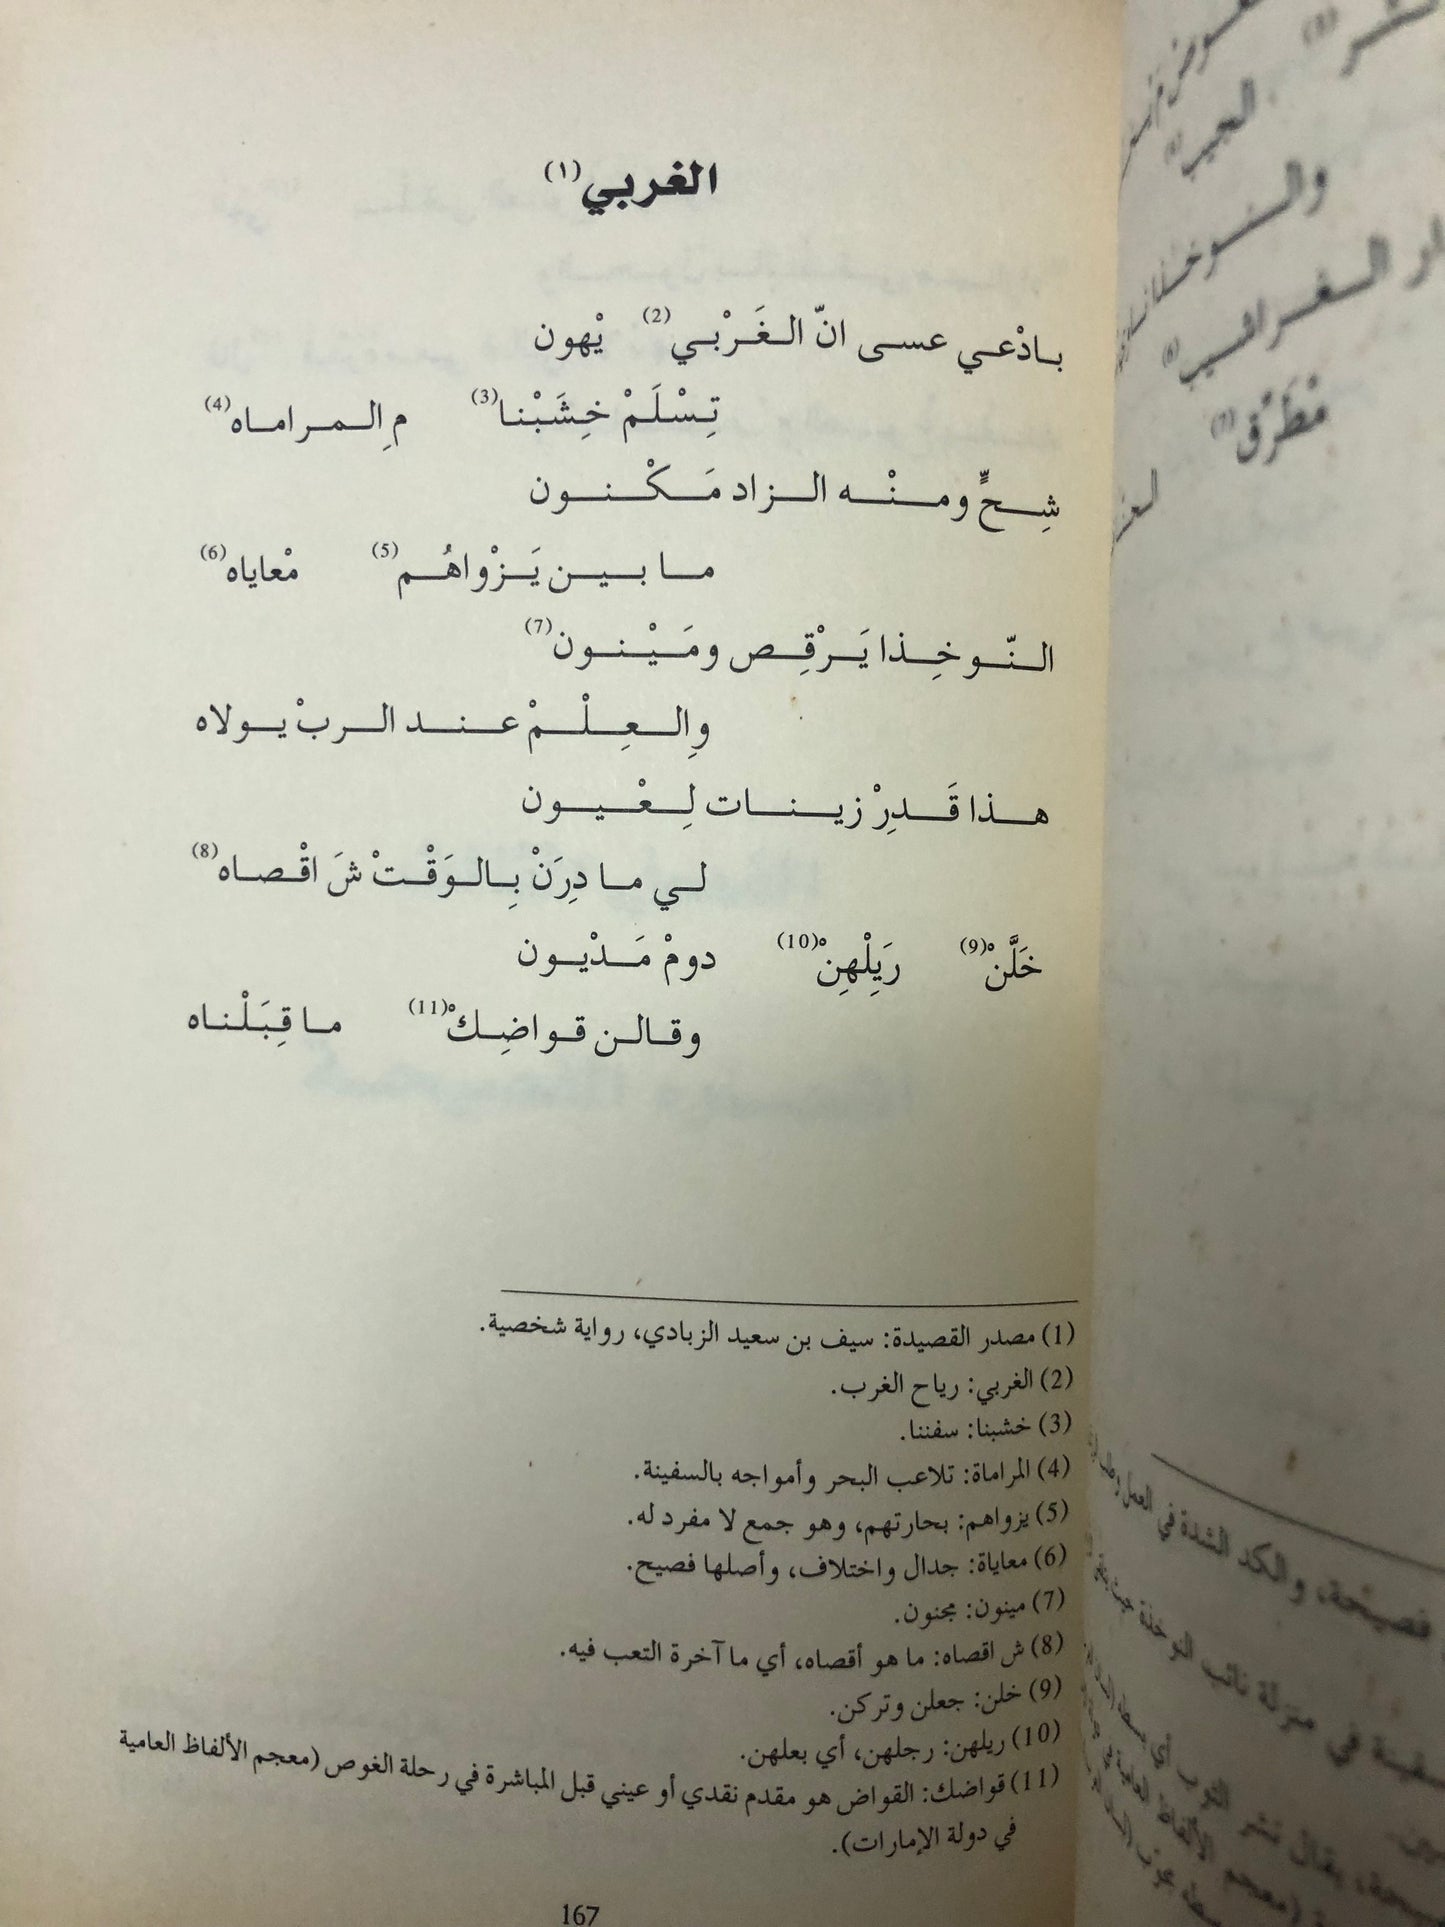 الغربي(١)
بادْعي عسى انّ الغَرْبي(2) يْهون
تِسْلَمْ خِشَبْنا(3) مِ المراماه(4)
شِحٍّ ومنْه الزاد مَكْنون
ما بين يَزْواهُم(5) مْعاياه(6)
النّوخِذا يَرْقِص ومَيْنون(7)
والعِلْمْ عند الربْ يولاه
هذا قَدِرْ زينات لِعْيون
لي ما دِرَنْ بِالوَقْتْ شَ اقْصاه(8)
خَلَّنْ(9) رَيِلْهِنْ(10) دومْ مَدْيون
وقالن قواضِكْ(11) ما قِبَلْناه
(1) مصدر القصيدة: سيف بن سعيد الزبادي، رواية شخصية.
(2) الغربي: رياح الغرب.
(3) خشبنا: سفننا.
(4) المراماة: تلاعب البحر وأمواجه بالسفينة.
(5) يزواهم: بحارتهم، وهو جمع لا مفرد له.
(6) معاياة: جدال واختلاف، وأصلها فصيح.
(7) مينون: مجنون.
(8) ش اقصاه: ما هو أقصاه، أي ما آخرة التعب فيه.
(9) خلن: جعلن وتركن.
(10) ريلهن: رجلهن، أي بعلهن.
(11) قواضك: القواض هو مقدم نقدي أو عيني قبل المباشرة في رحلة الغوص (معجم الألفاظ العامية
في دولة الإمارات).
167